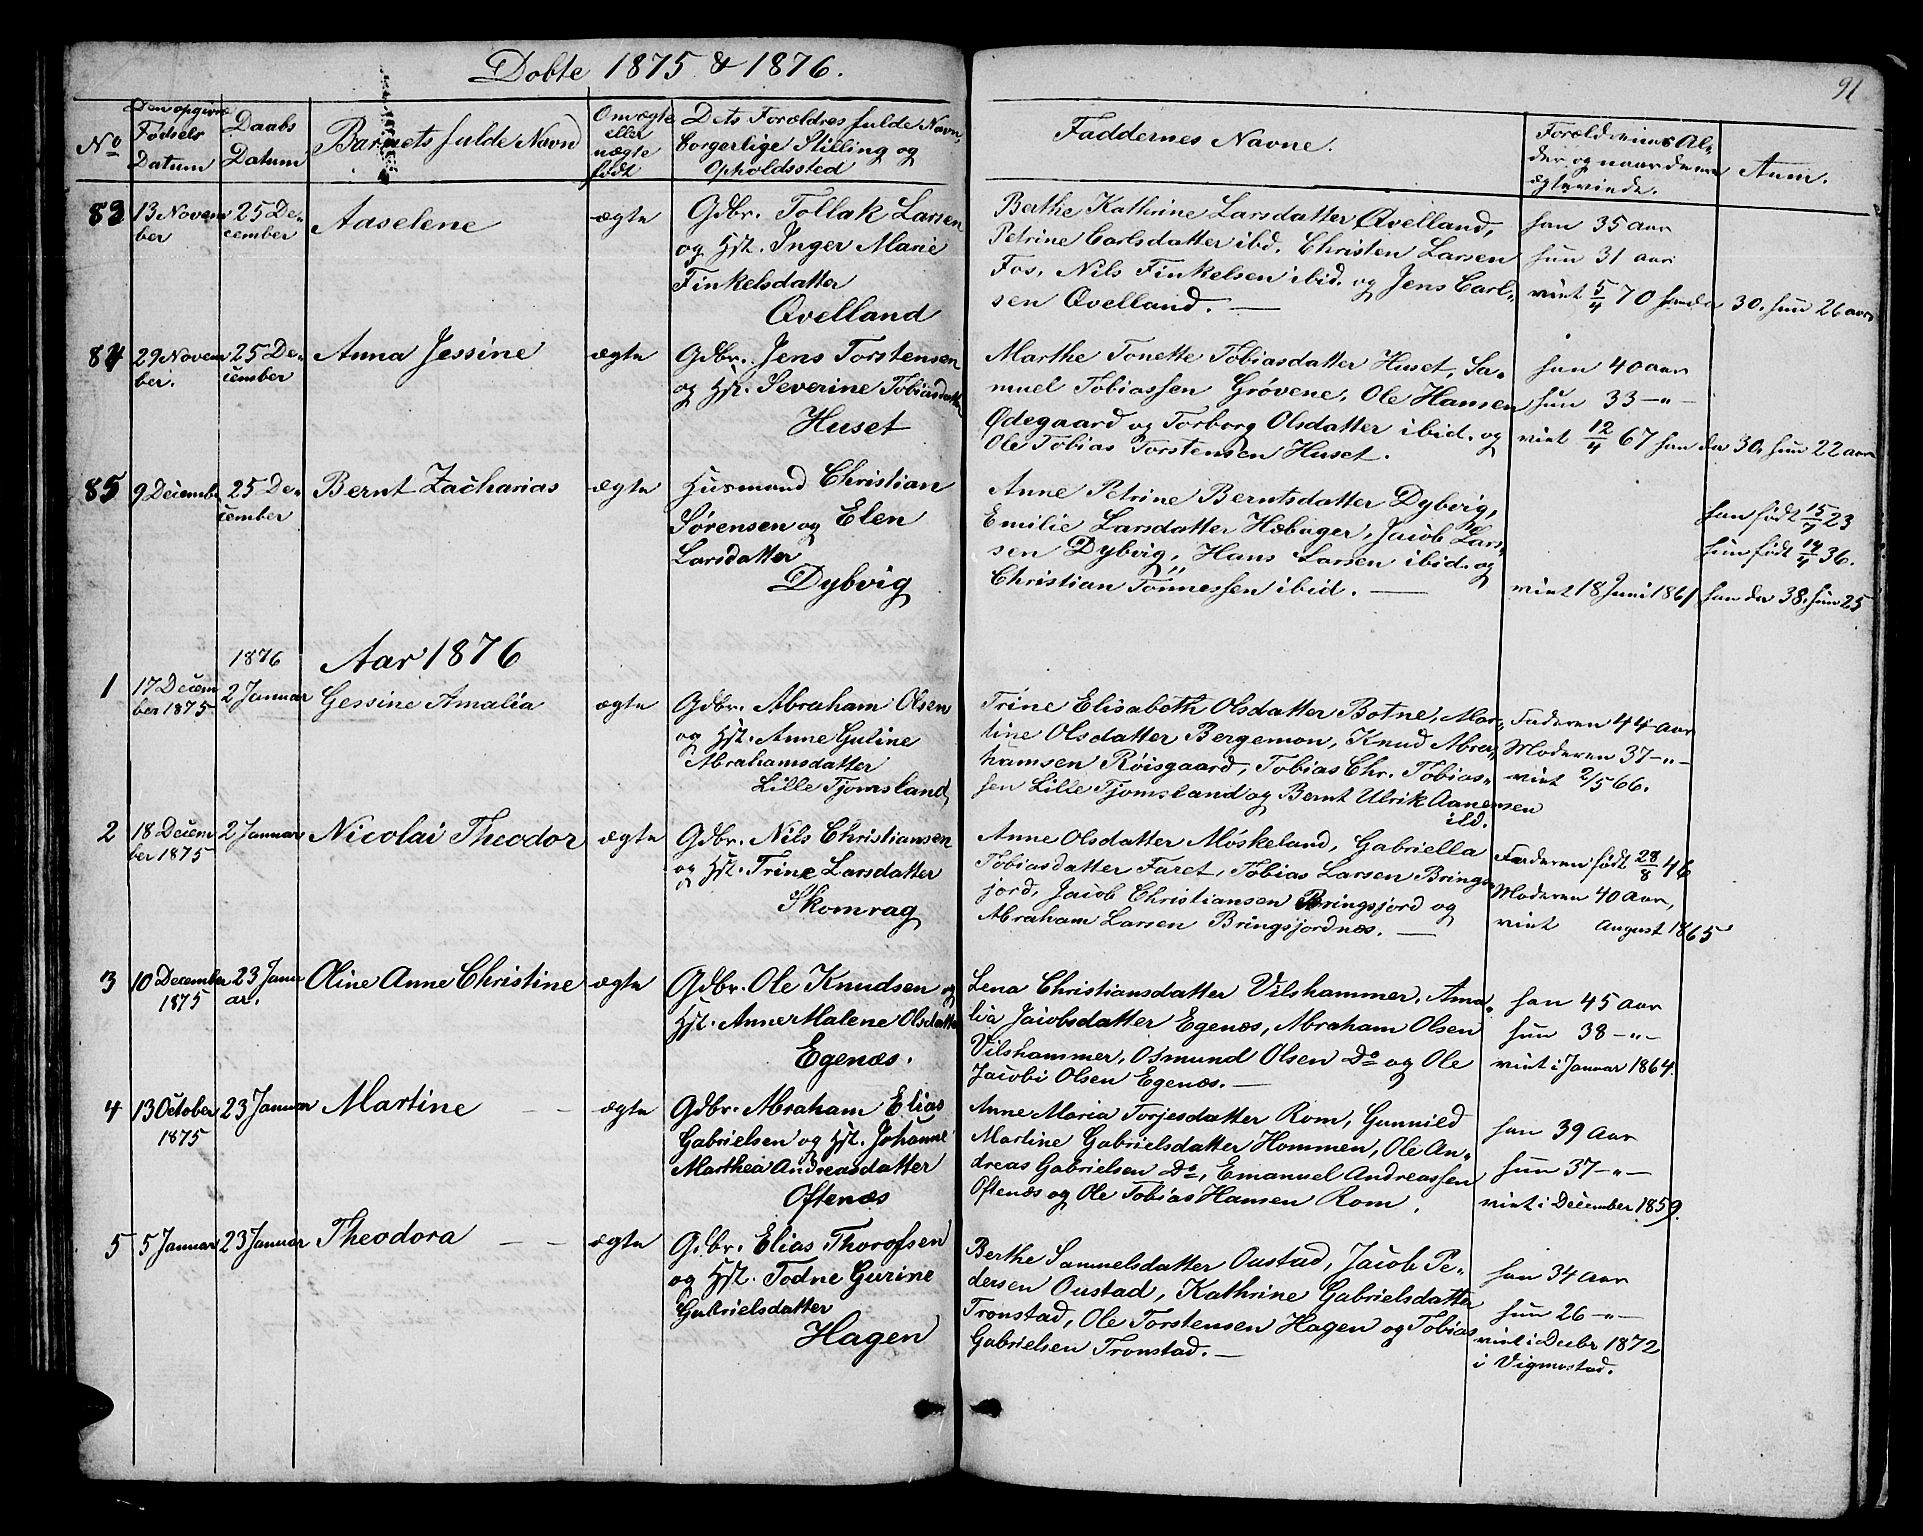 Døbte 1875 & 1876.
91
No
Den opgivne Fødsels Datum
Daabs Datum
Barnets fulde Navn
Om ægte eller uægte født
Dets Forældres fulde Navn, borgerlige Stilling og Opholdssted
Faddernes Navne.
Forældrenes Alder og naar de ere ægteviede.
Anm.
83
13 November
25 December
Aaselene
ægte
Gdbr. Tollak Larsen
og Hst. Inger Marie
Finkelsdatter
Øvelland
Berthe Kathrine Larsdatter Øvelland,
Petrine Carlsdatter ibd. Christen Larsen
Fos, Nils Finkelsen ibid. og Jens Carl-
sen Øvelland. —
han 35 aar
hun 31 aar
viet 5/4 70 han da 30. hun 26 aar
84
29 November.
25 December
Anna Jessine
ægte
Gdbr. Jens Torstensen
og Hst. Severine Tobiasdatter
Huset
Marthe Tonette Tobiasdatter Huset, Sa-
muel Tobiassen Grøvene, Ole Hansen
Ødegaard og Torborg Olsdatter ibid. og
Ole Tobias Torstensen Huset.
han 40 aar
hun 33 —"—
viet 12/4 67 han da 30. hun 22 aar
85
9 December
25 December
Bernt Zacharias
ægte
Husmand Christian
Sørensen og Elen
Larsdatter
Dybvig
Anne Petrine Berntsdatter Dybvig,
Emilie Larsdatter Hæbager, Jacob Lars-
sen Dybvig, Hans Larsen ibid. og
Christian Tønnessen ibid. —
han født 15/7 23
hun født 14/4 36.
viet 18 Juni 1861 han da 38. hun 25
1876
Aar 1876
1
17 December 1875.
2 Januar
Gessine Amalia
ægte
Gdbr. Abraham Olsen
og Hst. Anne Guline
Abrahamsdatter
Lille Tjomsland
Trine Elisabeth Olsdatter Botne, Mar-
tine Olsdatter Bergemon, Knud Abra-
hamsen Røisgaard, Tobias Chr. Tobias-
sen Lille Tjomsland og Bernt Ulrik Aanensen
ibd.
Faderen 44 aar
Moderen 37 —"—
viet 2/5 66.
2
18 December 1875
2 Januar
Nicolai Theodor
ægte
Gdbr. Nils Christiansen
og Hst. Trine Larsdatter
Skomrag
Anne Olsdatter Møskeland, Gabriella
Tobiasdatter Faret, Tobias Larsen Brings-
jord, Jacob Christiansen Bringsjord og
Abraham Larsen Bringsjordnæs. —
Faderen født 28/8 46
Moderen 40 aar,
viet August 1865
3
10 December 1875
23 Januar.
Oline Anne Christine
ægte
Gdbr. Ole Knudsen og
Hst. Anne Malene Olsdatter
Egenæs.
Lena Christiansdatter Vilshammer, Ama-
lia Jacobsdatter Egenæs, Abraham Olsen
Vilshammer, Osmund Olsen Do og Ole
Jacobi Olsen Egenæs. —
han 45 aar
hun 38 —"—
viet i Januar 1864.
4
13 October 1875
23 Januar
Martine — —
ægte
Gdbr. Abraham Elias
Gabrielsen og Hst. Johanne
Marthea Andreasdatter
Oftenæs
Anne Maria Torjesdatter Rom, Gunnild
Martine Gabrielsdatter Hommen, Ole An-
dreas Gabrielsen Do, Emanuel Andreassen
Oftenæs og Ole Tobias Hansen Rom.
han 39 aar
hun 37 —"—
viet i December 1859.
5
5 Januar
23 Januar
Theodora — —
ægte
Gdbr. Elias Thorofsen
og Hst. Todne Gurine
Gabrielsdatter
Hagen
Berthe Samuelsdatter Oustad, Jacob Pe-
dersen Oustad, Kathrine Gabrielsdatter
Tronstad, Ole Torstensen Hagen og Tobias
Gabrielsen Tronstad. —
han 34 aar
hun 26 —"—
viet i Decbr 1872
i Vigmostad.